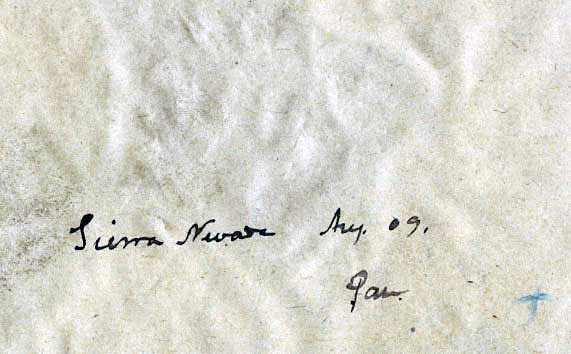 Sierra Nevada Aug. 09.
Pau.